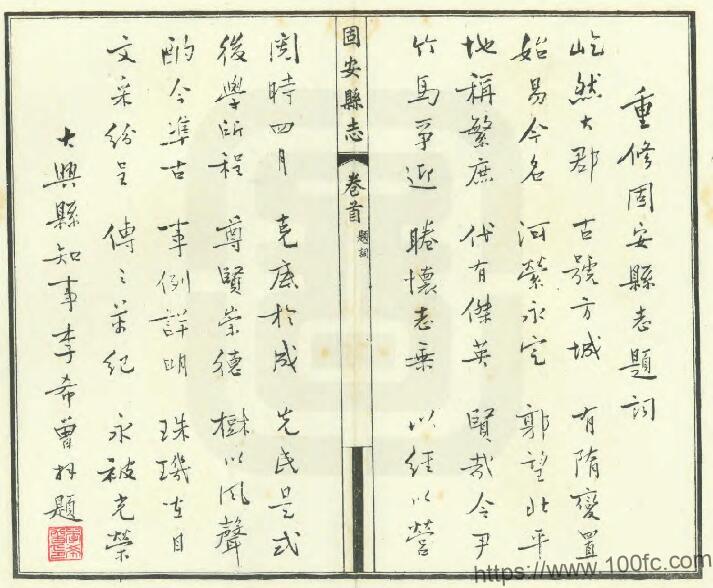 重修固安縣志題詞
屹然大郡 古號方城 有隋變置
始易今名 河縈永定 郭望北平
地稱繁庶 代有傑英 賢哉令尹
竹馬爭迎 睠懷志乘 以經以營
固安縣志 卷首 題詞
閱時四月 克底於成 先民是式
後學所程 尊賢崇德 樹以風聲
酌今準古 事例詳明 珠璣在目
文采紛呈 傳之萬紀 永被光榮
大興縣知事李希曾拜題
https://www.100fc.com